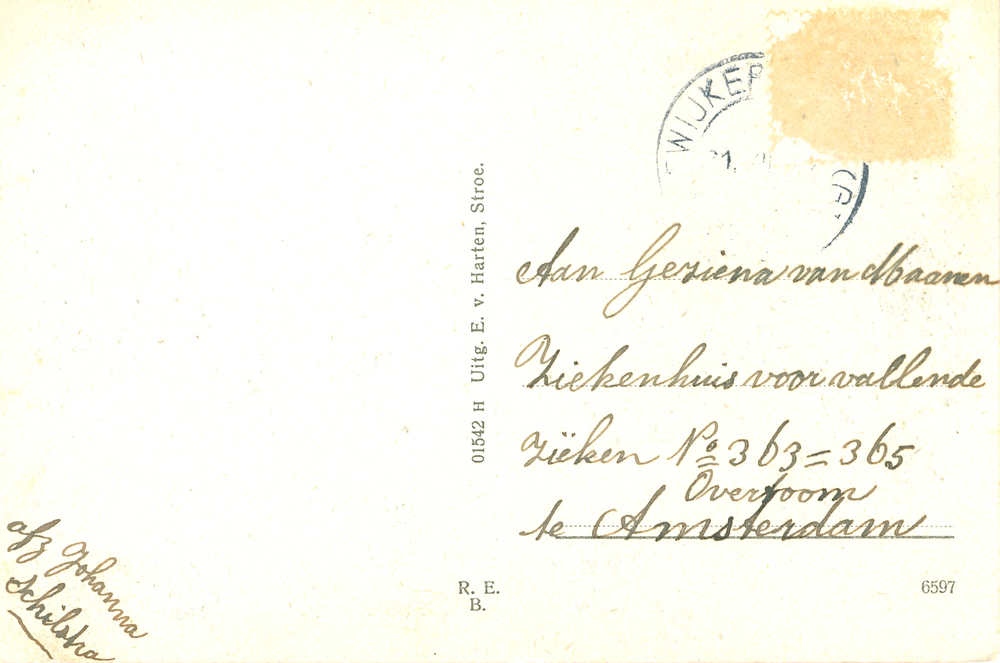 WIJKER
Aan Geziena van Maanen
Ziekenhuis voor vallende
Zieken No 363=365
Overtoom
te Amsterdam
01542 H Uitg. E. v. Harten, Stroe.
afz Johanna
Schilstra
R. E.
B.
6597